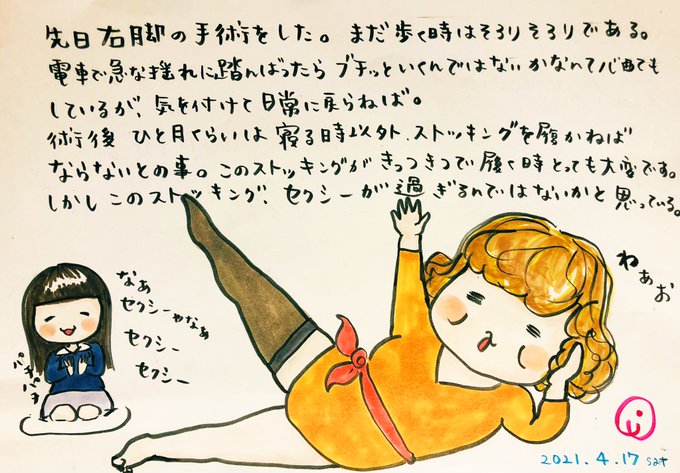 先日右脚の手術をした。まだ歩く時はそろりそろりである。
電車で急な揺れに踏んばったらブチッといくんではないかなんて心配でも
しているが、気を付けて日常に戻らねば。
術後ひと月くらいは寝る時以外、ストッキングを履かねば
ならないとの事。このストッキングがきっつきつで履く時とっても大変です。
しかしこのストッキング、セクシーが過ぎるんではないかと思っている。
ねぇお
なぁ
セクシーやなぁ
セクシー
セクシー
2021.4.17 sat